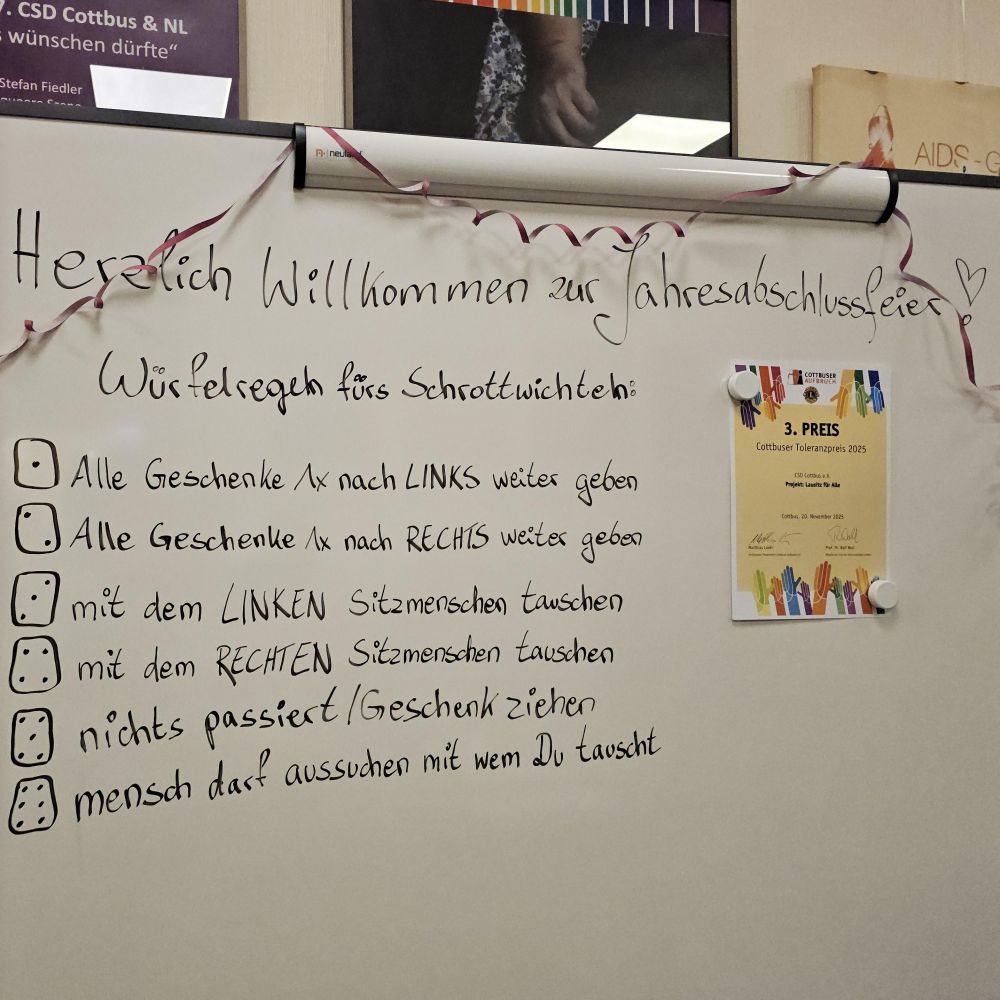 7. CSD Cottbus & NL
s wünschen dürfte“
Stefan Fiedler
queere Szene
neuland
AIDS-G
Herzlich Willkommen zur Jahresabschlussfeier!
Würfelregeln fürs Schrottwichteln:
Alle Geschenke 1x nach LINKS weiter geben
Alle Geschenke 1x nach RECHTS weiter geben
mit dem LINKEN Sitzmenschen tauschen
mit dem RECHTEN Sitzmenschen tauschen
nichts passiert/Geschenk ziehen
mensch darf aussuchen mit wem Du tauscht
COTTBUSER
AUFBRUCH
3. PREIS
Cottbuser Toleranzpreis 2025
CSD Cottbus e.V.
Projekt: Lausitz für Alle
Cottbus, 20. November 2025